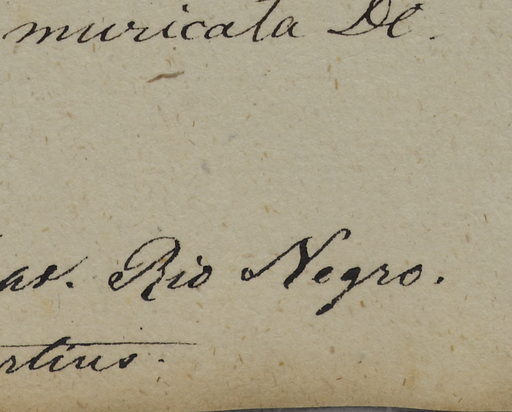 muricata DC.
as. Rio Negro.
rtius.